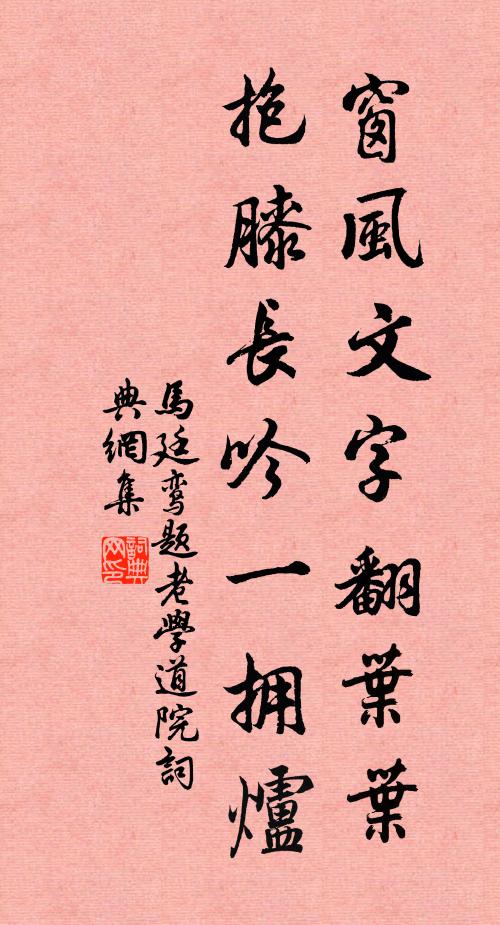 窗風文字翻葉葉
抱膝長吟一拥爐
馬廷鸞题老學道院詞
典網集
詞典网印